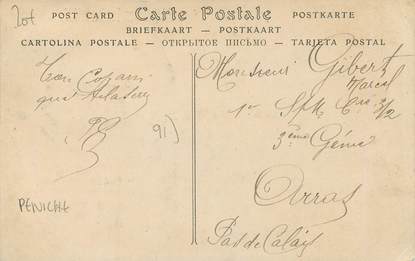 Lot
POST CARD Carte Postale POSTKARTE
BRIEFKAART — POSTKAART
CARTOLINA POSTALE — ОТКРЫТОЕ ПИСЬМО — TARJETA POSTAL
Ton Copain
qui
91)
PENICHE
Monsieur Gibert
Marcel
1er Cie 3/2
3ème Génie
Arras
Pas de Calais